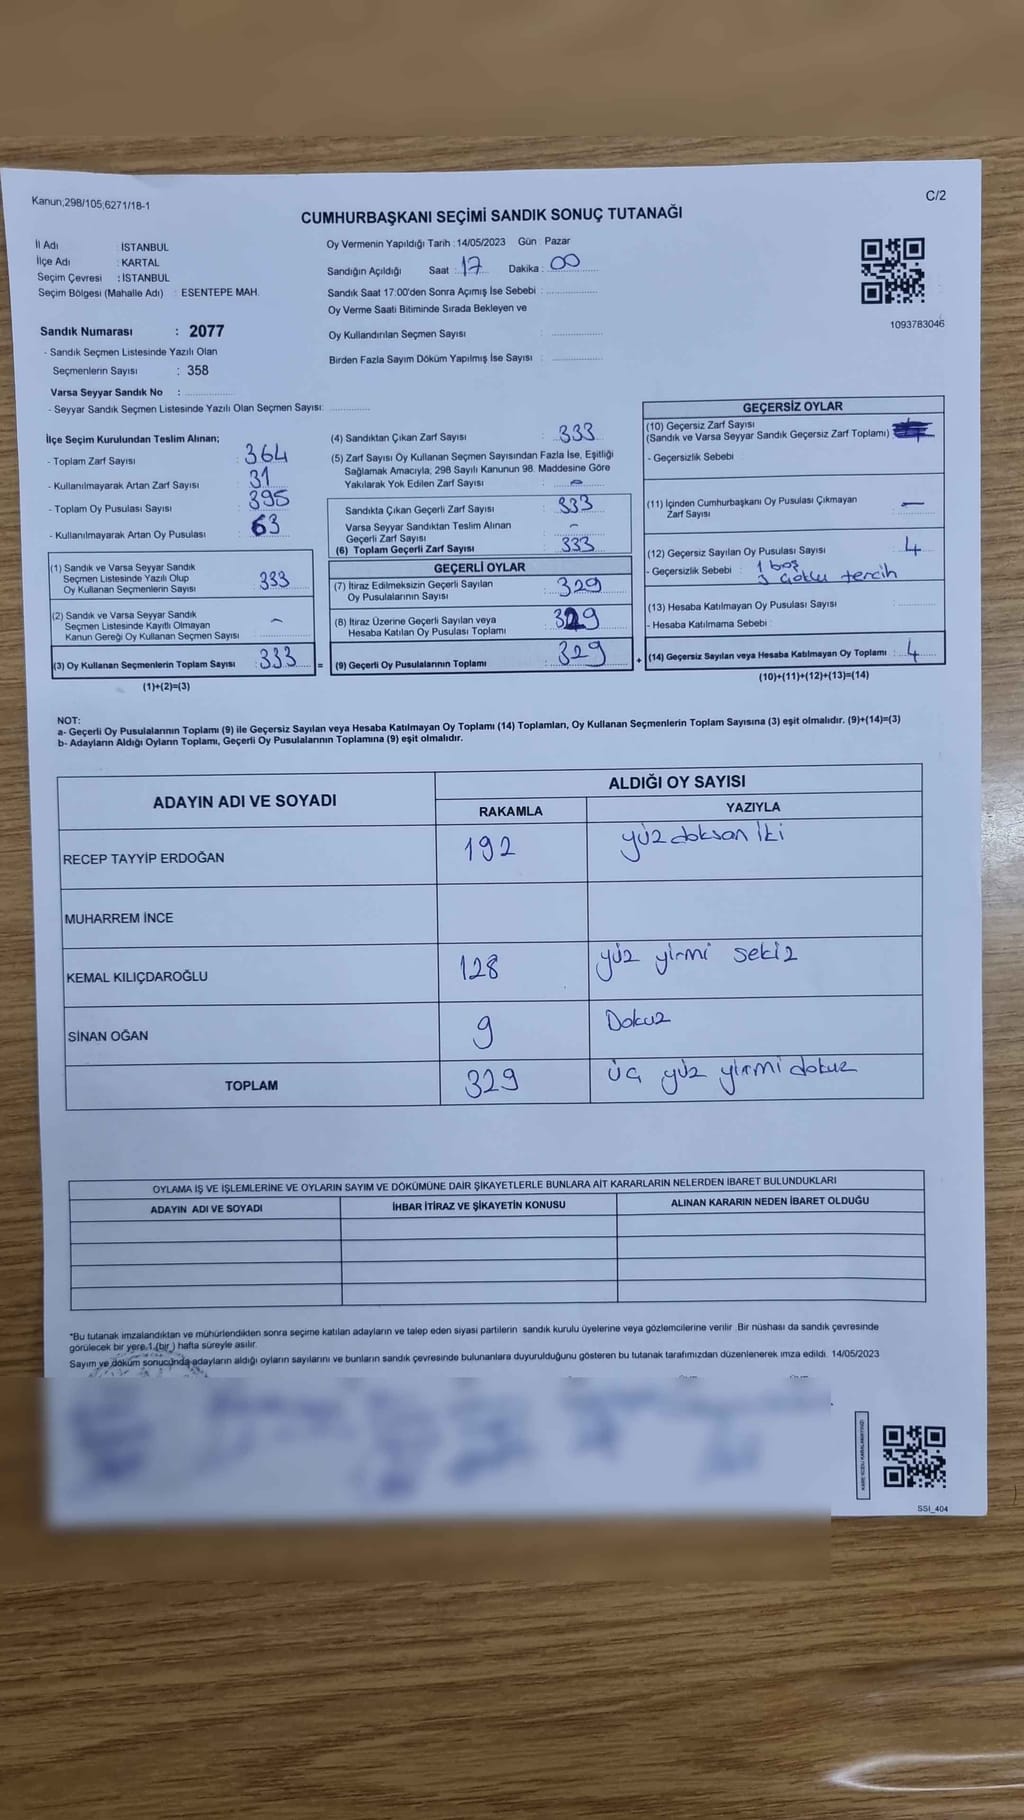 Kanun,298/105,6271/18-1
C/2
CUMHURBAŞKANI SEÇİMİ SANDIK SONUÇ TUTANAĞI
İl Adı İSTANBUL
İlçe Adı : KARTAL
Seçim Çevresi : İSTANBUL
Seçim Bölgesi (Mahalle Adı) : ESENTEPE MAH.
Oy Vermenin Yapıldığı Tarih : 14/05/2023 Gün : Pazar
Sandığın Açıldığı Saat : 17 Dakika : 00
Sandık Saat 17:00'den Sonra Açımış İse Sebebi :
Oy Verme Saati Bitiminde Sırada Bekleyen ve
Oy Kullandırılan Seçmen Sayısı :
Birden Fazla Sayım Döküm Yapılmış İse Sayısı :
1093783046
Sandık Numarası : 2077
- Sandık Seçmen Listesinde Yazılı Olan
Seçmenlerin Sayısı : 358
Varsa Seyyar Sandık No :
- Seyyar Sandık Seçmen Listesinde Yazılı Olan Seçmen Sayısı:
İlçe Seçim Kurulundan Teslim Alınan;
- Toplam Zarf Sayısı : 364
- Kullanılmayarak Artan Zarf Sayısı : 31
- Toplam Oy Pusulası Sayısı : 395
- Kullanılmayarak Artan Oy Pusulası : 63
(1) Sandık ve Varsa Seyyar Sandık
Seçmen Listesinde Yazılı Olup
Oy Kullanan Seçmenlerin Sayısı : 333
(2) Sandık ve Varsa Seyyar Sandık
Seçmen Listesinde Kayıtlı Olmayan
Kanun Gereği Oy Kullanan Seçmen Sayısı : -
(3) Oy Kullanan Seçmenlerin Toplam Sayısı : 333 =
(1)+(2)=(3)
(4) Sandıktan Çıkan Zarf Sayısı : 333
(5) Zarf Sayısı Oy Kullanan Seçmen Sayısından Fazla İse, Eşitliği
Sağlamak Amacıyla; 298 Sayılı Kanunun 98. Maddesine Göre
Yakılarak Yok Edilen Zarf Sayısı : -
Sandıkta Çıkan Geçerli Zarf Sayısı : 333
Varsa Seyyar Sandıktan Teslim Alınan
Geçerli Zarf Sayısı : -
(6) Toplam Geçerli Zarf Sayısı : 333
GEÇERLİ OYLAR
(7) İtiraz Edilmeksizin Geçerli Sayılan
Oy Pusulalarının Sayısı : 329
(8) İtiraz Üzerine Geçerli Sayılan veya
Hesaba Katılan Oy Pusulası Toplamı : 329
(9) Geçerli Oy Pusulalarının Toplamı : 329 +
GEÇERSİZ OYLAR
(10) Geçersiz Zarf Sayısı
(Sandık ve Varsa Seyyar Sandık Geçersiz Zarf Toplamı) :
- Geçersizlik Sebebi :
(11) İçinden Cumhurbaşkanı Oy Pusulası Çıkmayan
Zarf Sayısı : -
(12) Geçersiz Sayılan Oy Pusulası Sayısı : 4
- Geçersizlik Sebebi : 1 boş
3 çoklu tercih
(13) Hesaba Katılmayan Oy Pusulası Sayısı :
- Hesaba Katılmama Sebebi :
(14) Geçersiz Sayılan veya Hesaba Katılmayan Oy Toplamı : 4
(10)+(11)+(12)+(13)=(14)
NOT:
a- Geçerli Oy Pusulalarının Toplamı (9) ile Geçersiz Sayılan veya Hesaba Katılmayan Oy Toplamı (14) Toplamları, Oy Kullanan Seçmenlerin Toplam Sayısına (3) eşit olmalıdır. (9)+(14)=(3)
b- Adayların Aldığı Oyların Toplamı, Geçerli Oy Pusulalarının Toplamına (9) eşit olmalıdır.
ADAYIN ADI VE SOYADI ALDIĞI OY SAYISI
RAKAMLA YAZIYLA
RECEP TAYYİP ERDOĞAN 192 yüz doksan iki
MUHARREM İNCE
KEMAL KILIÇDAROĞLU 128 yüz yirmi sekiz
SİNAN OĞAN 9 Dokuz
TOPLAM 329 üç yüz yirmi dokuz
OYLAMA İŞ VE İŞLEMLERİNE VE OYLARIN SAYIM VE DÖKÜMÜNE DAİR ŞİKAYETLERLE BUNLARA AİT KARARLARIN NELERDEN İBARET BULUNDUKLARI
ADAYIN ADI VE SOYADI İHBAR İTİRAZ VE ŞİKAYETİN KONUSU ALINAN KARARIN NEDEN İBARET OLDUĞU
*Bu tutanak imzalandıktan ve mühürlendikten sonra seçime katılan adayların ve talep eden siyasi partilerin sandık kurulu üyelerine veya gözlemcilerine verilir. Bir nüshası da sandık çevresinde
görülecek bir yere 1 (bir) hafta süreyle asılır.
Sayım ve döküm sonucunda adayların aldığı oyların sayılarını ve bunların sandık çevresinde bulunanlara duyurulduğunu gösteren bu tutanak tarafımızdan düzenlenerek imza edildi. 14/05/2023
SSI_404